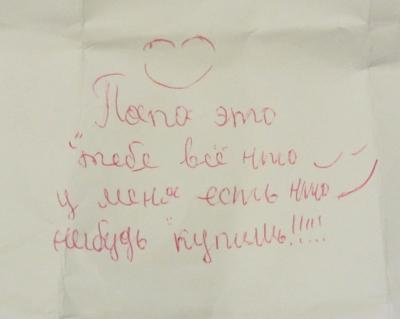 Папа это
"тебе всё што
у меня есть што
нибудь "купишь!!!!!